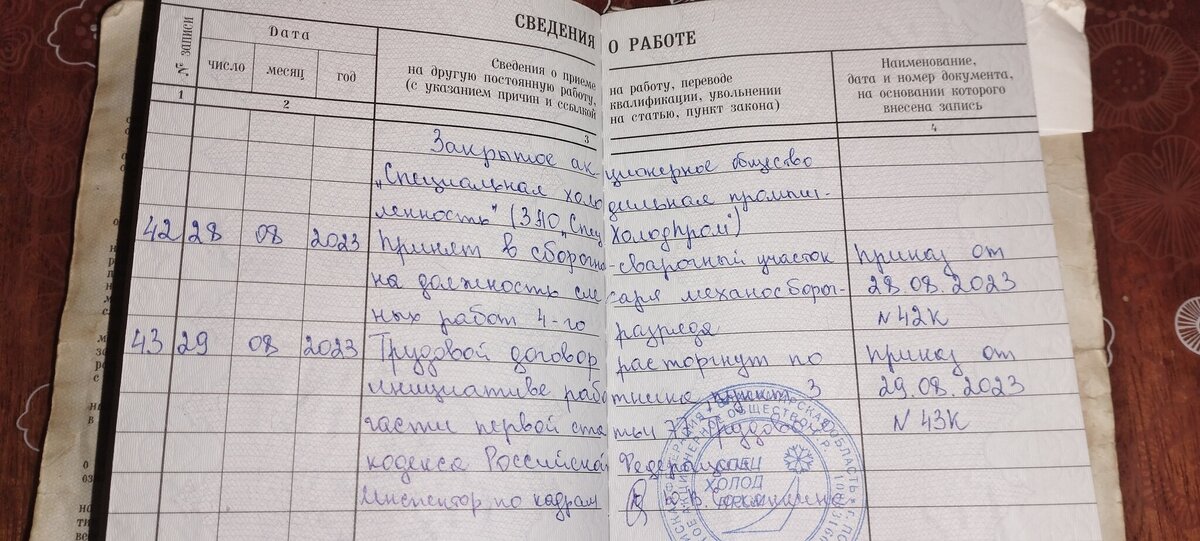 СВЕДЕНИЯ О РАБОТЕ
№ записи
Дата
число
месяц
год
Сведения о приеме на работу, переводе
на другую постоянную работу, квалификации, увольнении
(с указанием причин и ссылкой на статью, пункт закона)
Наименование,
дата и номер документа,
на основании которого
внесена запись
1 2 3 4
Закрытое акционерное общество
„Специальная холодильная промыш-
ленность" (ЗАО „СпецХолодПром")
42 28 08 2023 Принят в сборочно-сварочный участок Приказ от
на должность слесаря механосбороч- 28.08.2023
ных работ 4-го разряда N 42К
43 29 08 2023 Трудовой договор расторгнут по Приказ от
инициативе работника, пункт 3 29.08.2023
части первой статьи 77 Трудового N 43К
кодекса Российской Федерации
Инспектор по кадрам
СПЕЦ
ХОЛОД
ПРОМ